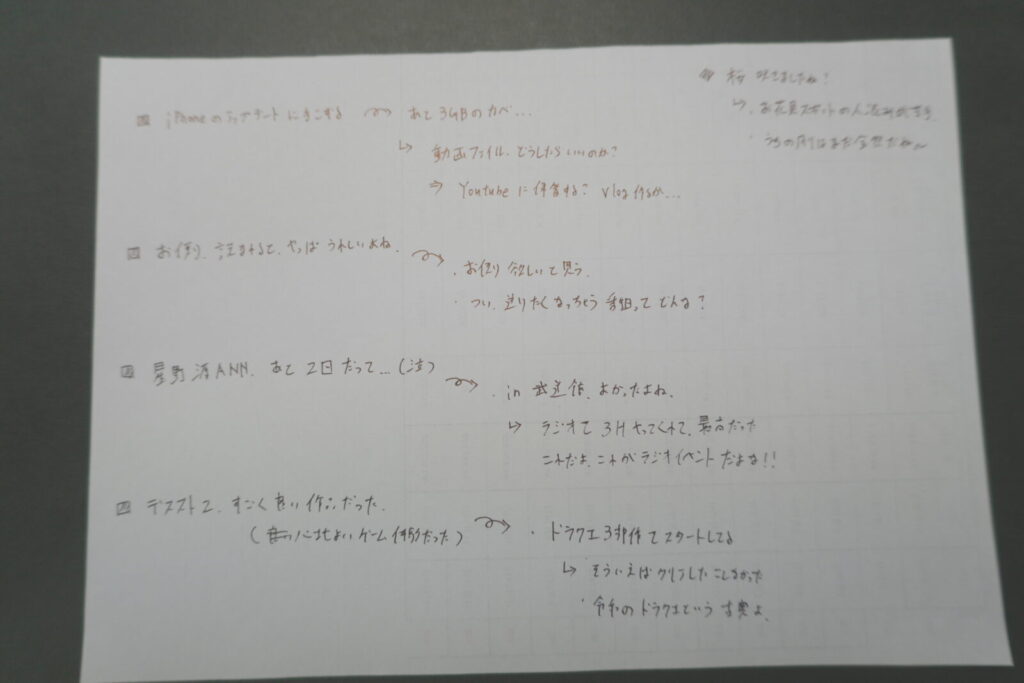 桜 咲きましたね!
↳ ・お花見スポットの人混みが苦手
・うちの周りはまだ全然だね〜
iPhoneのアップデートに手こずる
あと 3GBのカベ...
↳ 動画ファイル、どうしたらいいのか?
⇒ Youtubeに保管する? Vlog 作るか...
お便り、読まれると、やっぱ うれしいよね、
・お便り 欲しいて思う、
・つい、送りたくなっちゃう 番組って どんな?
星野 源ANN、あと 2日だって...(泣)
・in 武道館、よかったよね、
↳ ラジオで 3H やってくれて、最高だった
これだよ、これがラジオイベントだよな!!
デススト2、すごく良い作品だった、
(心地よいゲーム体験だった)
・ドラクエ3 スタートしてる
↳ そういえばクリアしたことなかった
・令和のドラクエという